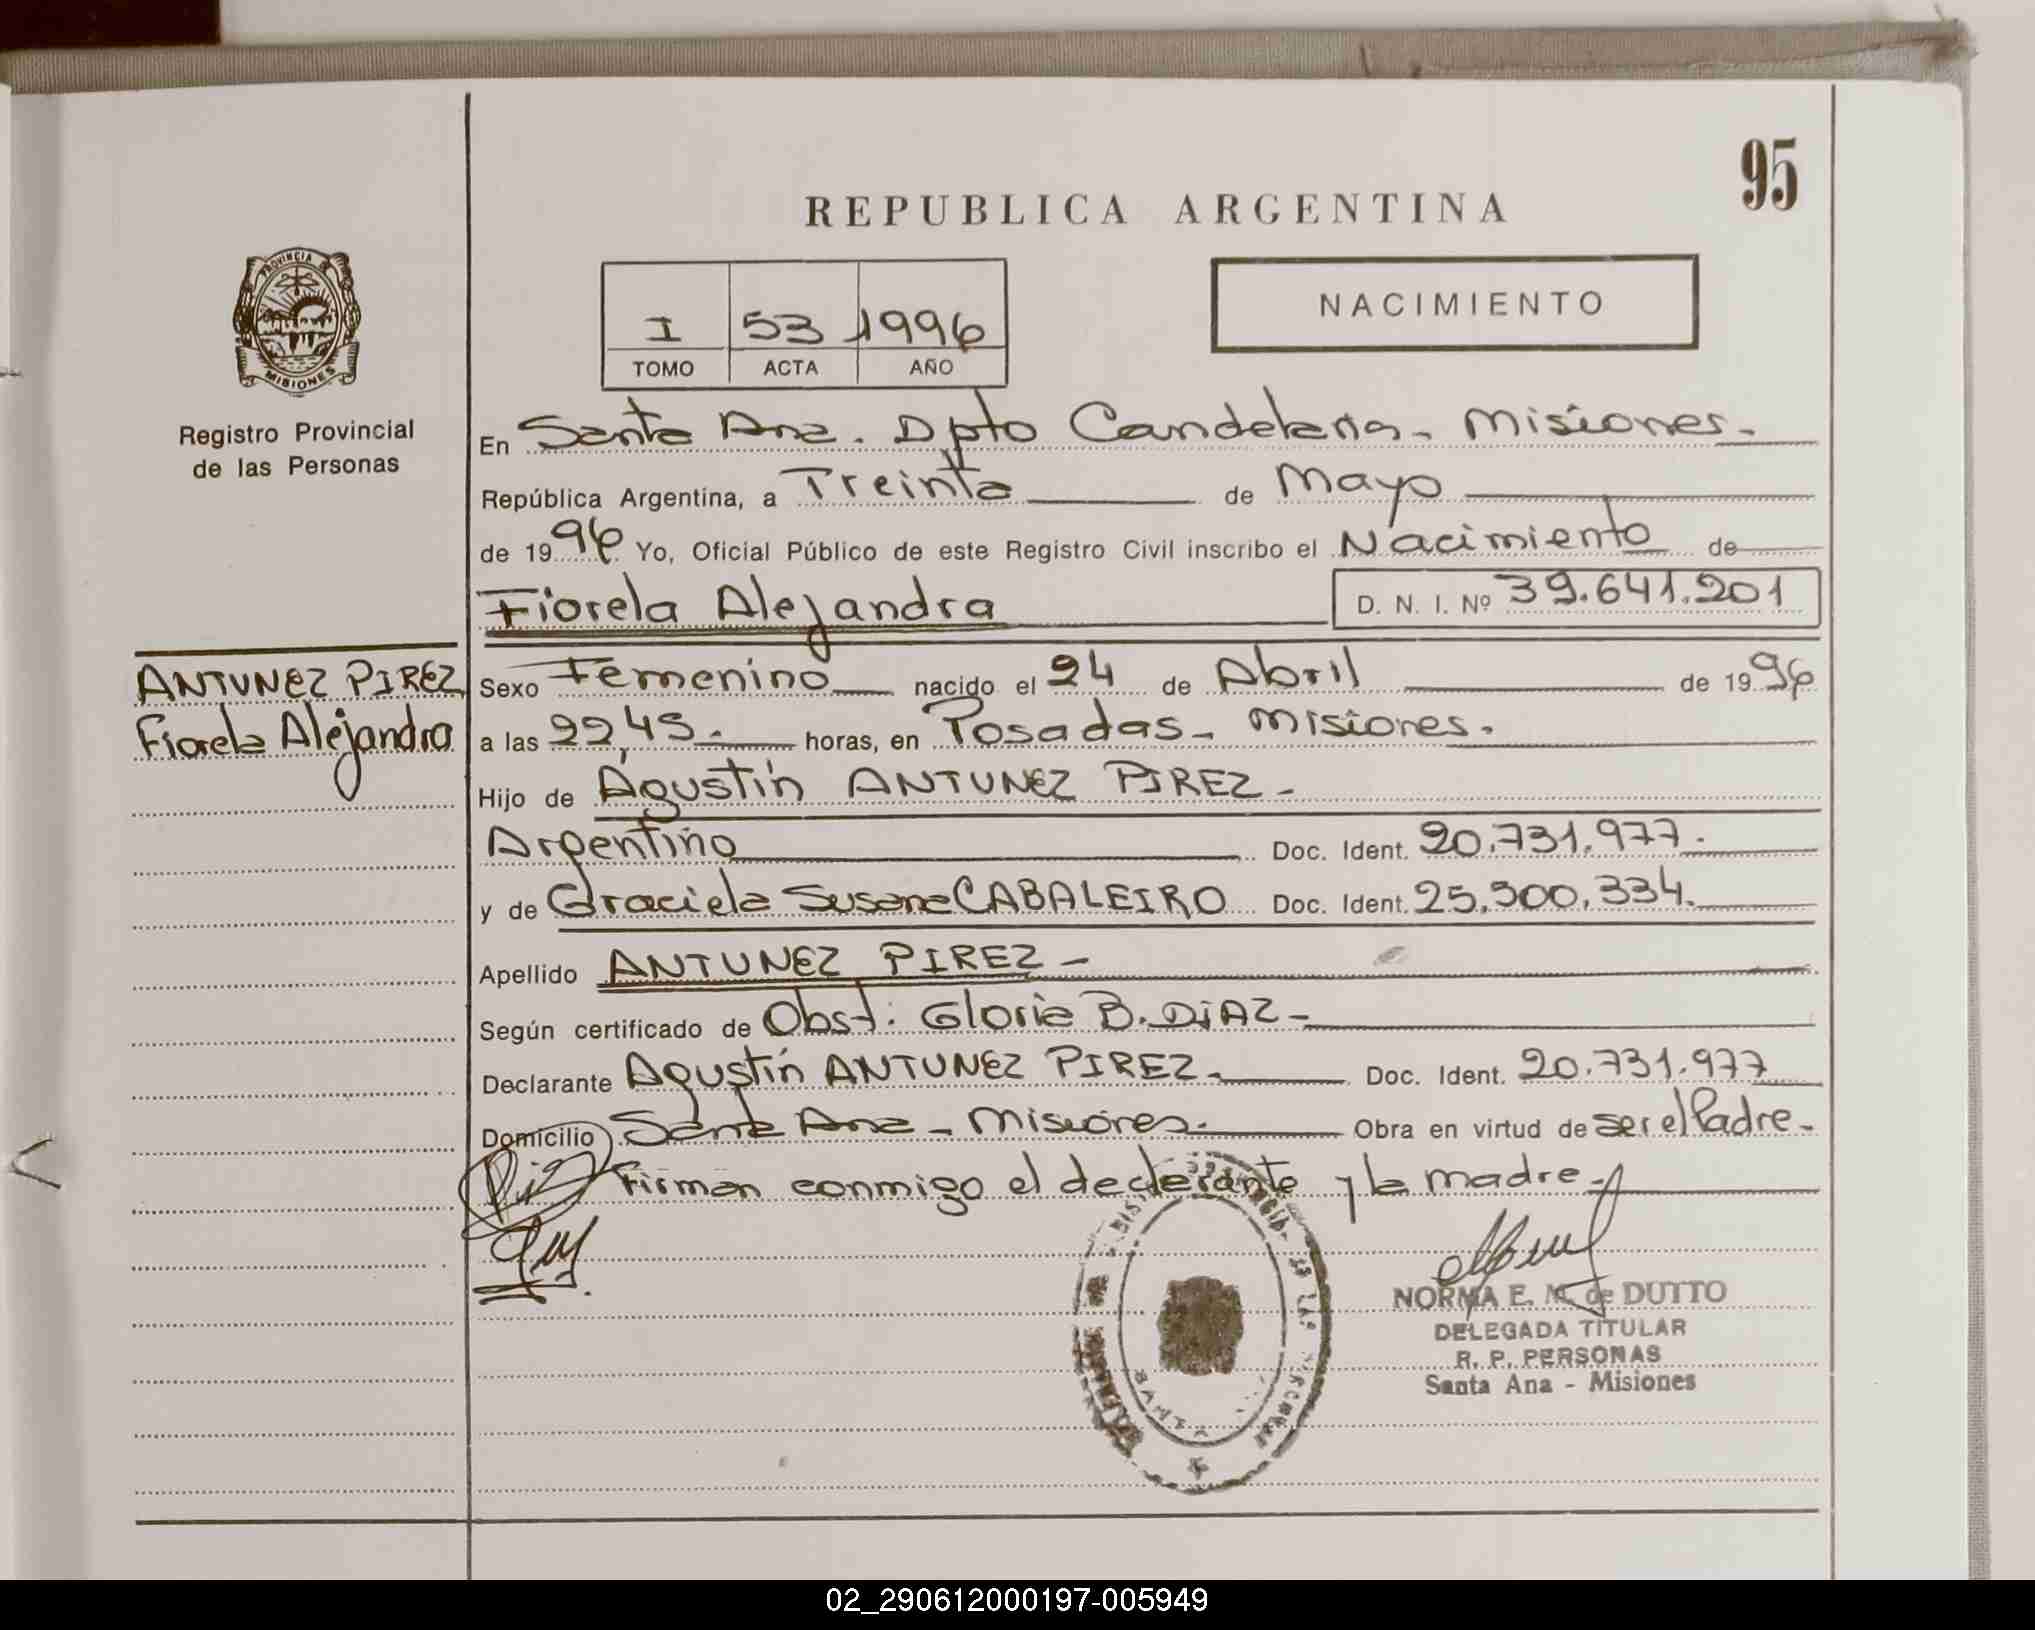 95
REPUBLICA ARGENTINA
PROVINCIA DE
MISIONES
Registro Provincial
de las Personas
I 53 1996
TOMO ACTA AÑO
NACIMIENTO
En Santa Ana. Dpto Candelaria - Misiones.-
República Argentina, a Treinta de Mayo
de 1996 Yo, Oficial Público de este Registro Civil inscribo el Nacimiento de
Fiorela Alejandra D. N. I. Nº 39.641.201
ANTUNEZ PIREZ
Fiorela Alejandra
Sexo Femenino nacido el 24 de Abril de 1996
a las 22,45.- horas, en Posadas - Misiones.
Hijo de Agustín ANTUNEZ PIREZ -
Argentino Doc. Ident. 20.731.977.
y de Graciela Susana CABALEIRO Doc. Ident. 25.900.334.
Apellido ANTUNEZ PIREZ -
Según certificado de Obst. Gloria B. DIAZ -
Declarante Agustín ANTUNEZ PIREZ. Doc. Ident. 20.731.977
Domicilio Santa Ana - Misiones.- Obra en virtud de ser el Padre -
Firman conmigo el declarante y la madre -
NORMA E. M. de DUTTO
DELEGADA TITULAR
R. P. PERSONAS
Santa Ana - Misiones
02_290612000197-005949